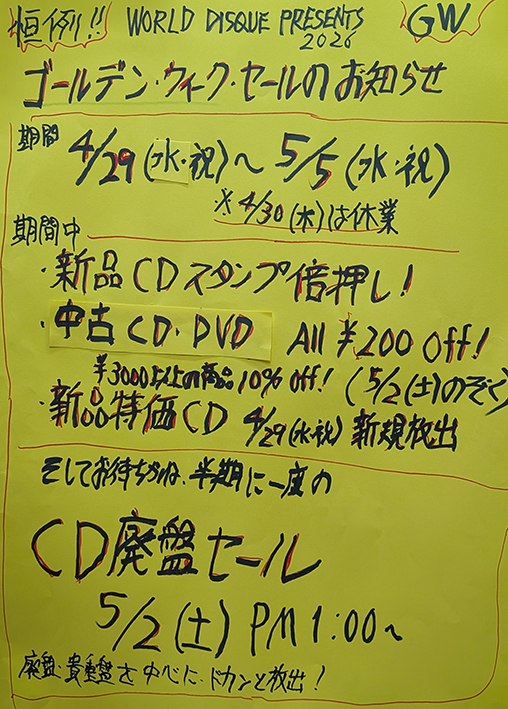 恒例!! WORLD DISQUE PRESENTS 2026 GW
ゴールデン・ウィーク・セールのお知らせ
期間 4/29(水・祝)〜5/5(水・祝)
※4/30(木)は休業
期間中
・新品CDスタンプ倍押し!
・中古CD・DVD All ¥200 Off!
¥3000以上の商品10% Off! (5/2(土)のぞく)
・新品特価CD 4/29(水・祝) 新規放出
そしてお待ちかね、半期に一度の
CD廃盤セール
5/2(土) PM 1:00〜
廃盤・貴重盤を中心に、ドカンと放出!